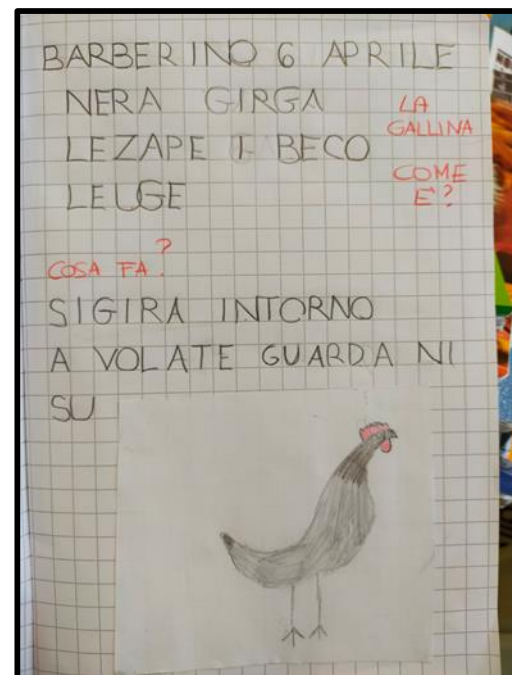 BARBERINO 6 APRILE
NERA GIRGA
LEZAPE I BECO
LEUGE
LA
GALLINA
COME
E'?
COSA FA?
SIGIRA INTORNO
A VOLATE GUARDA NI
SU